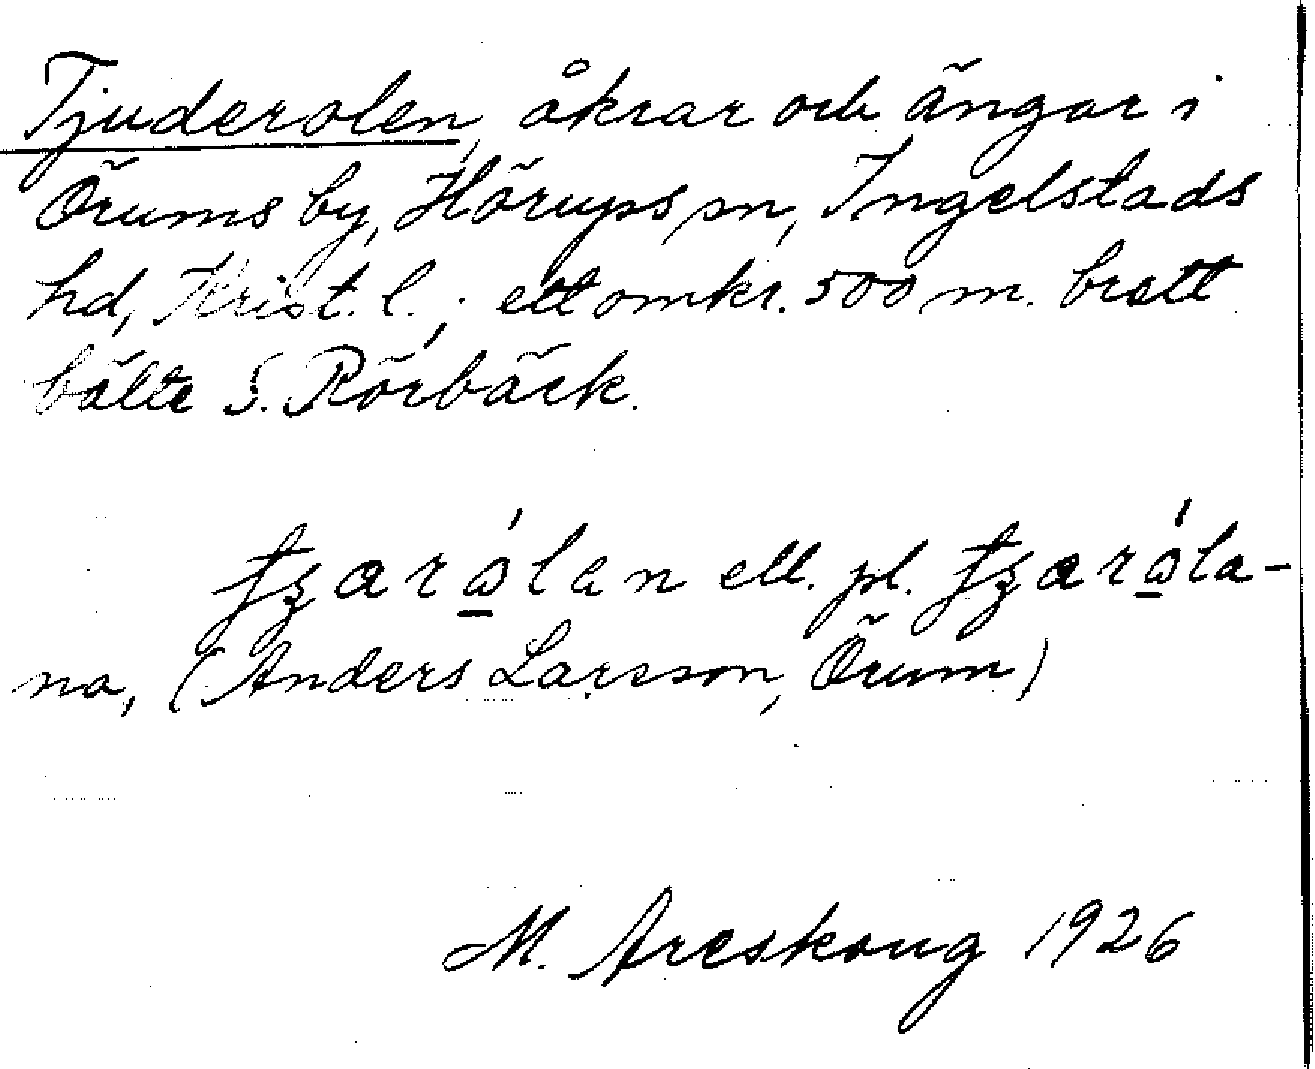 Tjuderolen, åkrar och ängar i
Örums by, Hörups sn, Ingelstads
hd, Krist. l.; ett omkr. 500 m. brett
bälte S. Rörbäck.
ell. pl.
(Anders Larsson, Örum)
M. Areskoug 1926